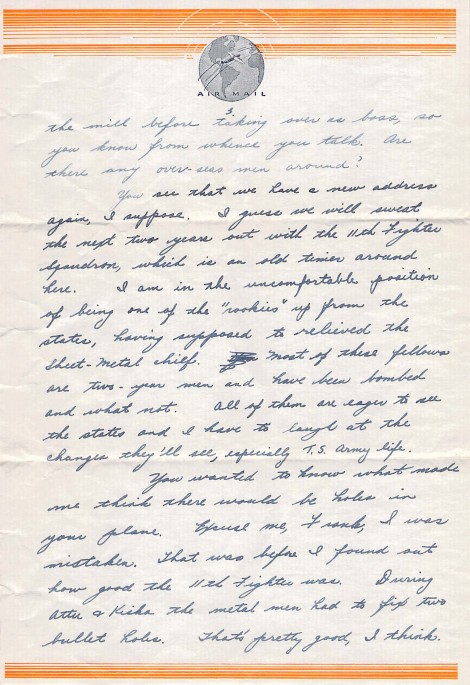 AIR MAIL
3
the mill before taking over as boss, so
you know from whence you talk. Are
there any over-seas men around?
You see that we have a new address
again, I suppose. I guess we will sweat
the next two years out with the 11th Fighter
Squadron, which is an old timer around
here. I am in the uncomfortable position
of being one of the "rookies" up from the
states, having supposed to relieved the
Sheet-Metal chief. Most of these fellows
are two-year men and have been bombed
and what not. All of them are eager to see
the states and I have to laugh at the
changes they'll see, especially T.S. Army life.
You wanted to know what made
me think there would be holes in
your plane. Excuse me, Frank, I was
mistaken. That was before I found out
how good the 11th Fighter was. During
Attu & Kiska the metal men had to fix two
bullet holes. That's pretty good, I think.